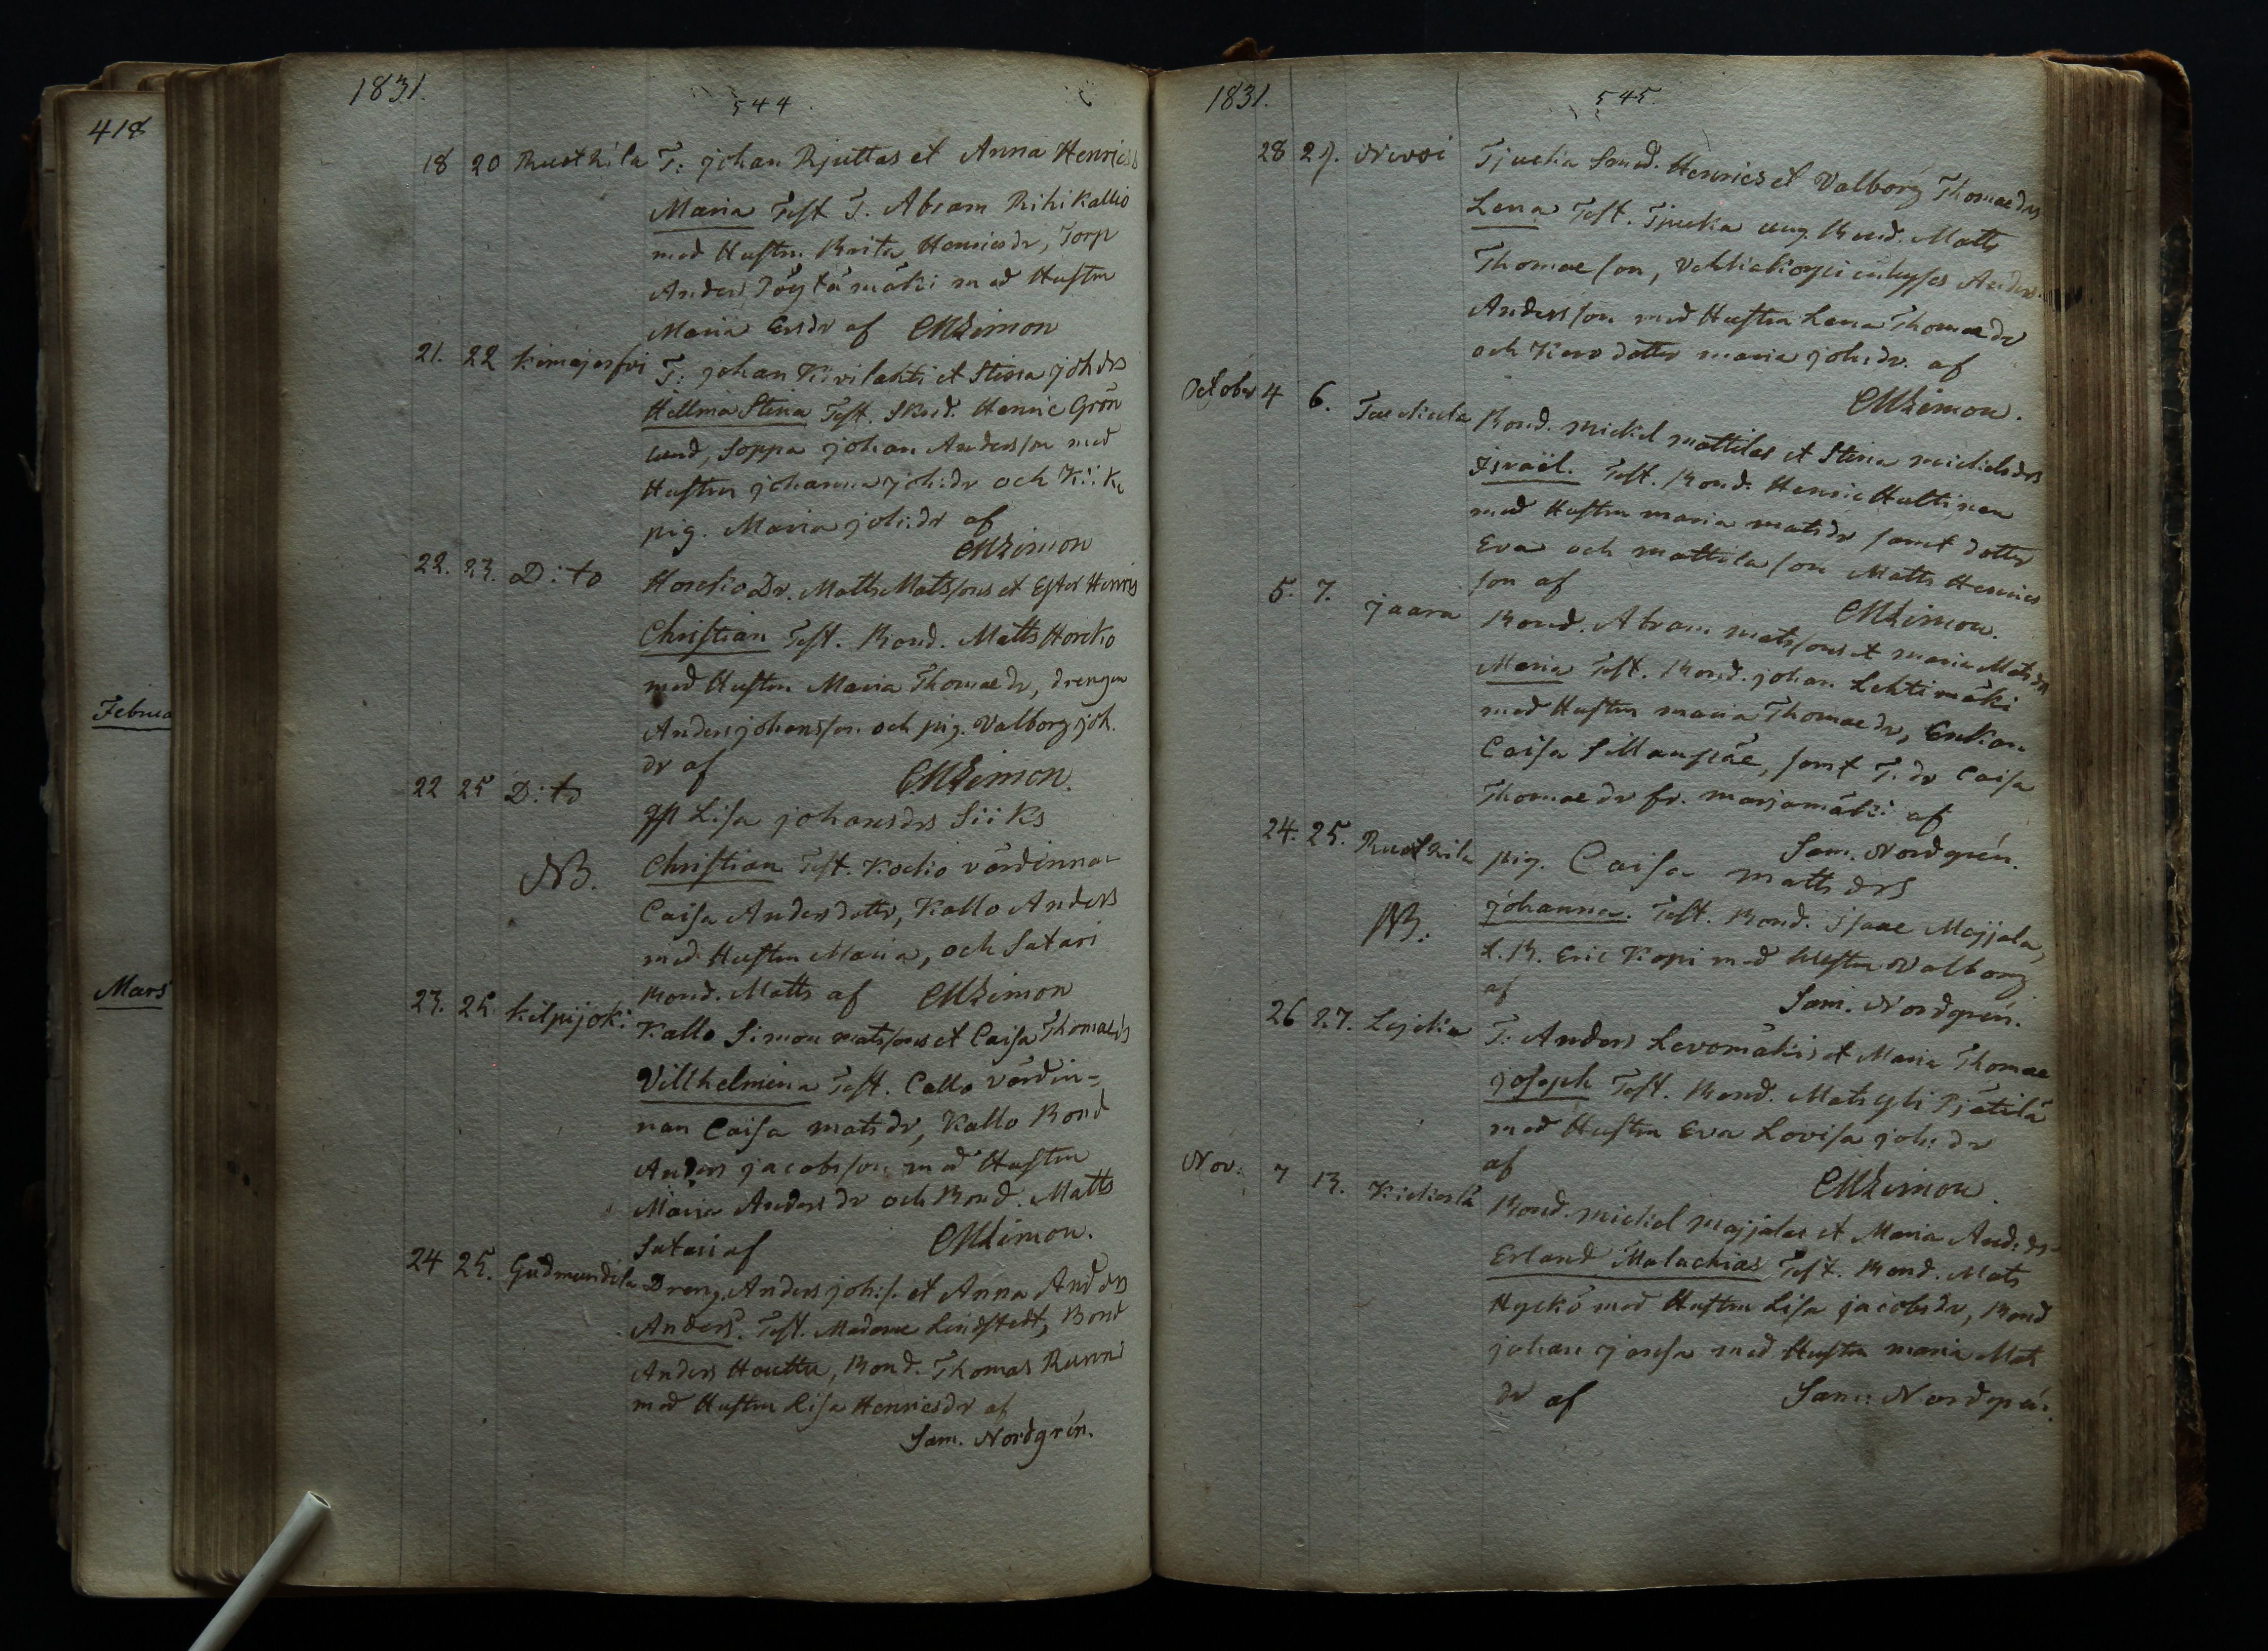 418
Februa
Mars
1831.
544
18 20 Rustkila T: Johan Rjuttas et Anna Henricss
Maria Test T. Abram Rihikallio
med Hustru Brita Henricsdr, Torp
Anders Pöytämäki med Hustru
Maria Ersdr af CMLimon
21. 22 Kimajerfvi T: Johan Kivilahti et Stina Johdrs
Hellma Stina Test. Skrd. Henric Grön
lund, Soppa Johan Andersson med
Hustru Johanna Joh:dr och Kiiki
pig. Maria Joh:dr af
CMLimon
22. 23. D:to Horckio Dr. Matts Matssons et Ester Henrics
Christian Test. Bond. Matts Horckio
med Hustru Maria Thomaedr, drengen
Anders Johansson och pig. Valborg Joh.
dr af CMLimon.
22 25 D:to gp Lisa Johansdrs Siiks
NB. Christian Test. Kockio värdinnan
Caisa Andersdotter, Kallo Anders
med Hustru Maria, och Satari
Bond. Matts af CMLimon
23. 25. Kilpijoki Kallo Simon Matssons et Caisa Thomaedrs
Villhelmina Test. Callo Värdin=
nan Caisa Matsdr, Kallo Bond
Anders Jacobsson med Hustru
Maria Andersdr och Bond. Matts
Satari af CMLimon.
24 25. Gudmundila Dreng Anders Joh:s. et Anna Anddrs
Anders. Test. Madame Lindstedt, Bond
Anders Houttu, Bond. Thomas Runni
med Hustru Lisa Henricsdr af
Sam. Nordgrén.
1831.
545.
28 29. Nivoi Tjuckia Smed. Henrics et Valborg Thomaedrs
Lena Test. Tjucka ung. Bond. Matts
Thomaeson, inhyses Anders
Andersson med Hustru Lena Thomaedr
och dotter Maria Joh:dr. af
CMLimon.
October 4 6. Bond. Mickel Mattilas et Stina Mickelsdrs
Israël. Test. Bond. Henric Hultinen
med Hustru Maria Matsdr samt dotter
Eva och Mattila son Matts Henrics
son af CMLimon.
5. 7. Jaara Bond. Abram Matssons et Maria Matsdrs
Maria Test. Bond. Johan Lehtimäki
med Hustru Maria Thomaedr, Enkan
Caisa Sillanpää, samt T. dr Caisa
Thomaedr fr. Marjamäki af
Sam. Nordgrén.
24. 25. Rustkila pig. Caisa Mattsdrs
NB. Johanna. Test. Bond. Isaac Majjala,
L. B. Eric Kopi med Hustru Valborg
af Sam. Nordgrén.
26 27. Lejckia T: Anders Levomäkis et Maria Thomae
Joseph Test. Bond. Mats Yli Pjätilä
med Hustru Eva Lovisa Joh:dr
af CMLimon.
Nov. 7 13. Kickerlä Bond. Mickel Majjalas et Maria And:drs
Erland Malachias Test. Bond. Mats
Hyckö med Hustru Lisa Jacobsdr, Bond
Johan Jansa med Hustru Maria Mats
dr af Sam: Nordgrén.